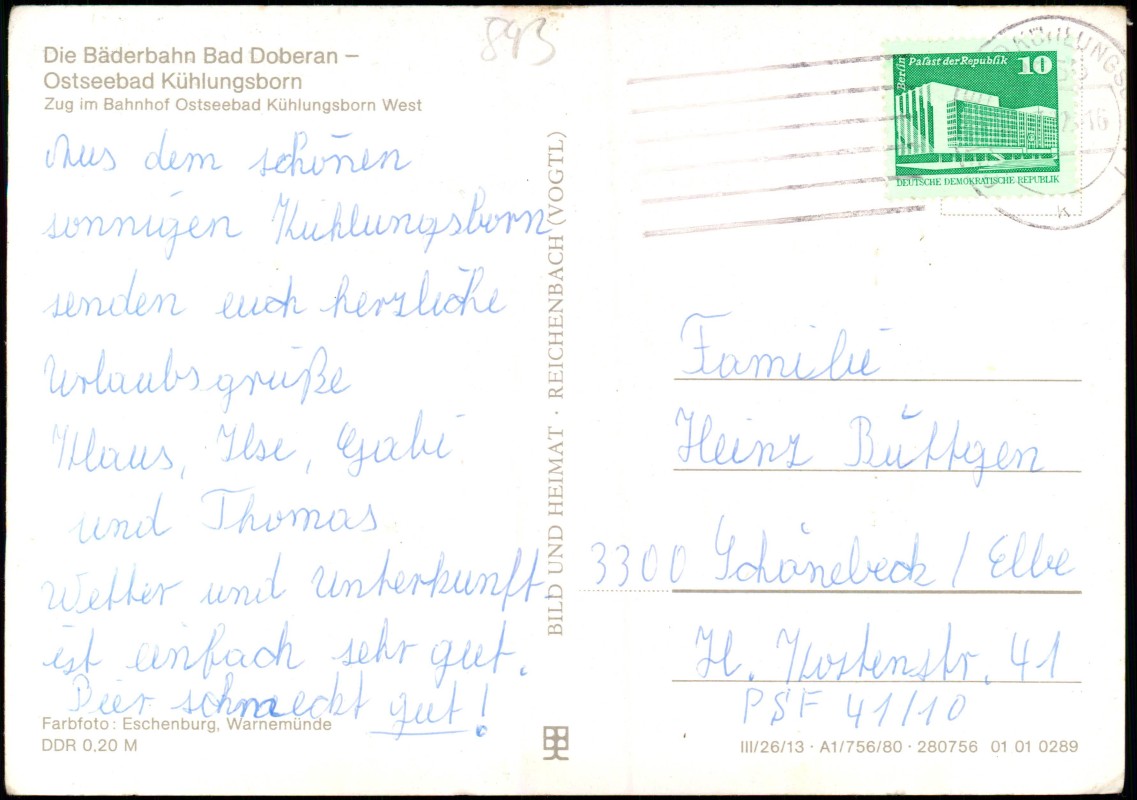 Die Bäderbahn Bad Doberan –
Ostseebad Kühlungsborn
Zug im Bahnhof Ostseebad Kühlungsborn West
893
Aus dem schönen
sonnigen Kühlungsborn
senden euch herzliche
Urlaubsgrüße
Klaus, Ilse, Gabi
und Thomas
Wetter und Unterkunft
ist einfach sehr gut.
Bier schmeckt gut!
Farbfoto: Eschenburg, Warnemünde
DDR 0,20 M
BILD UND HEIMAT · REICHENBACH (VOGTL)
Berlin
Palast der Republik 10
DEUTSCHE DEMOKRATISCHE REPUBLIK
k
Familie
Heinz Büttgen
3300 Schönebeck / Elbe
H. Kostenstr. 41
PSF 41/10
III/26/13 · A1/756/80 · 280756 01 01 0289